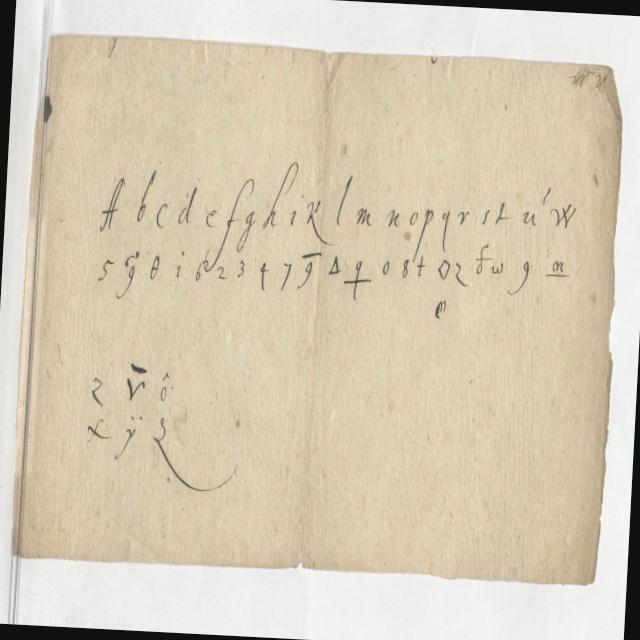 A b c d e f g h i k l m n o p q r s t u w
5 g θ i 6 2 3 4 7 g Δ q o 8 t 0 2 f w 9 m
2 v ô
x ÿ z